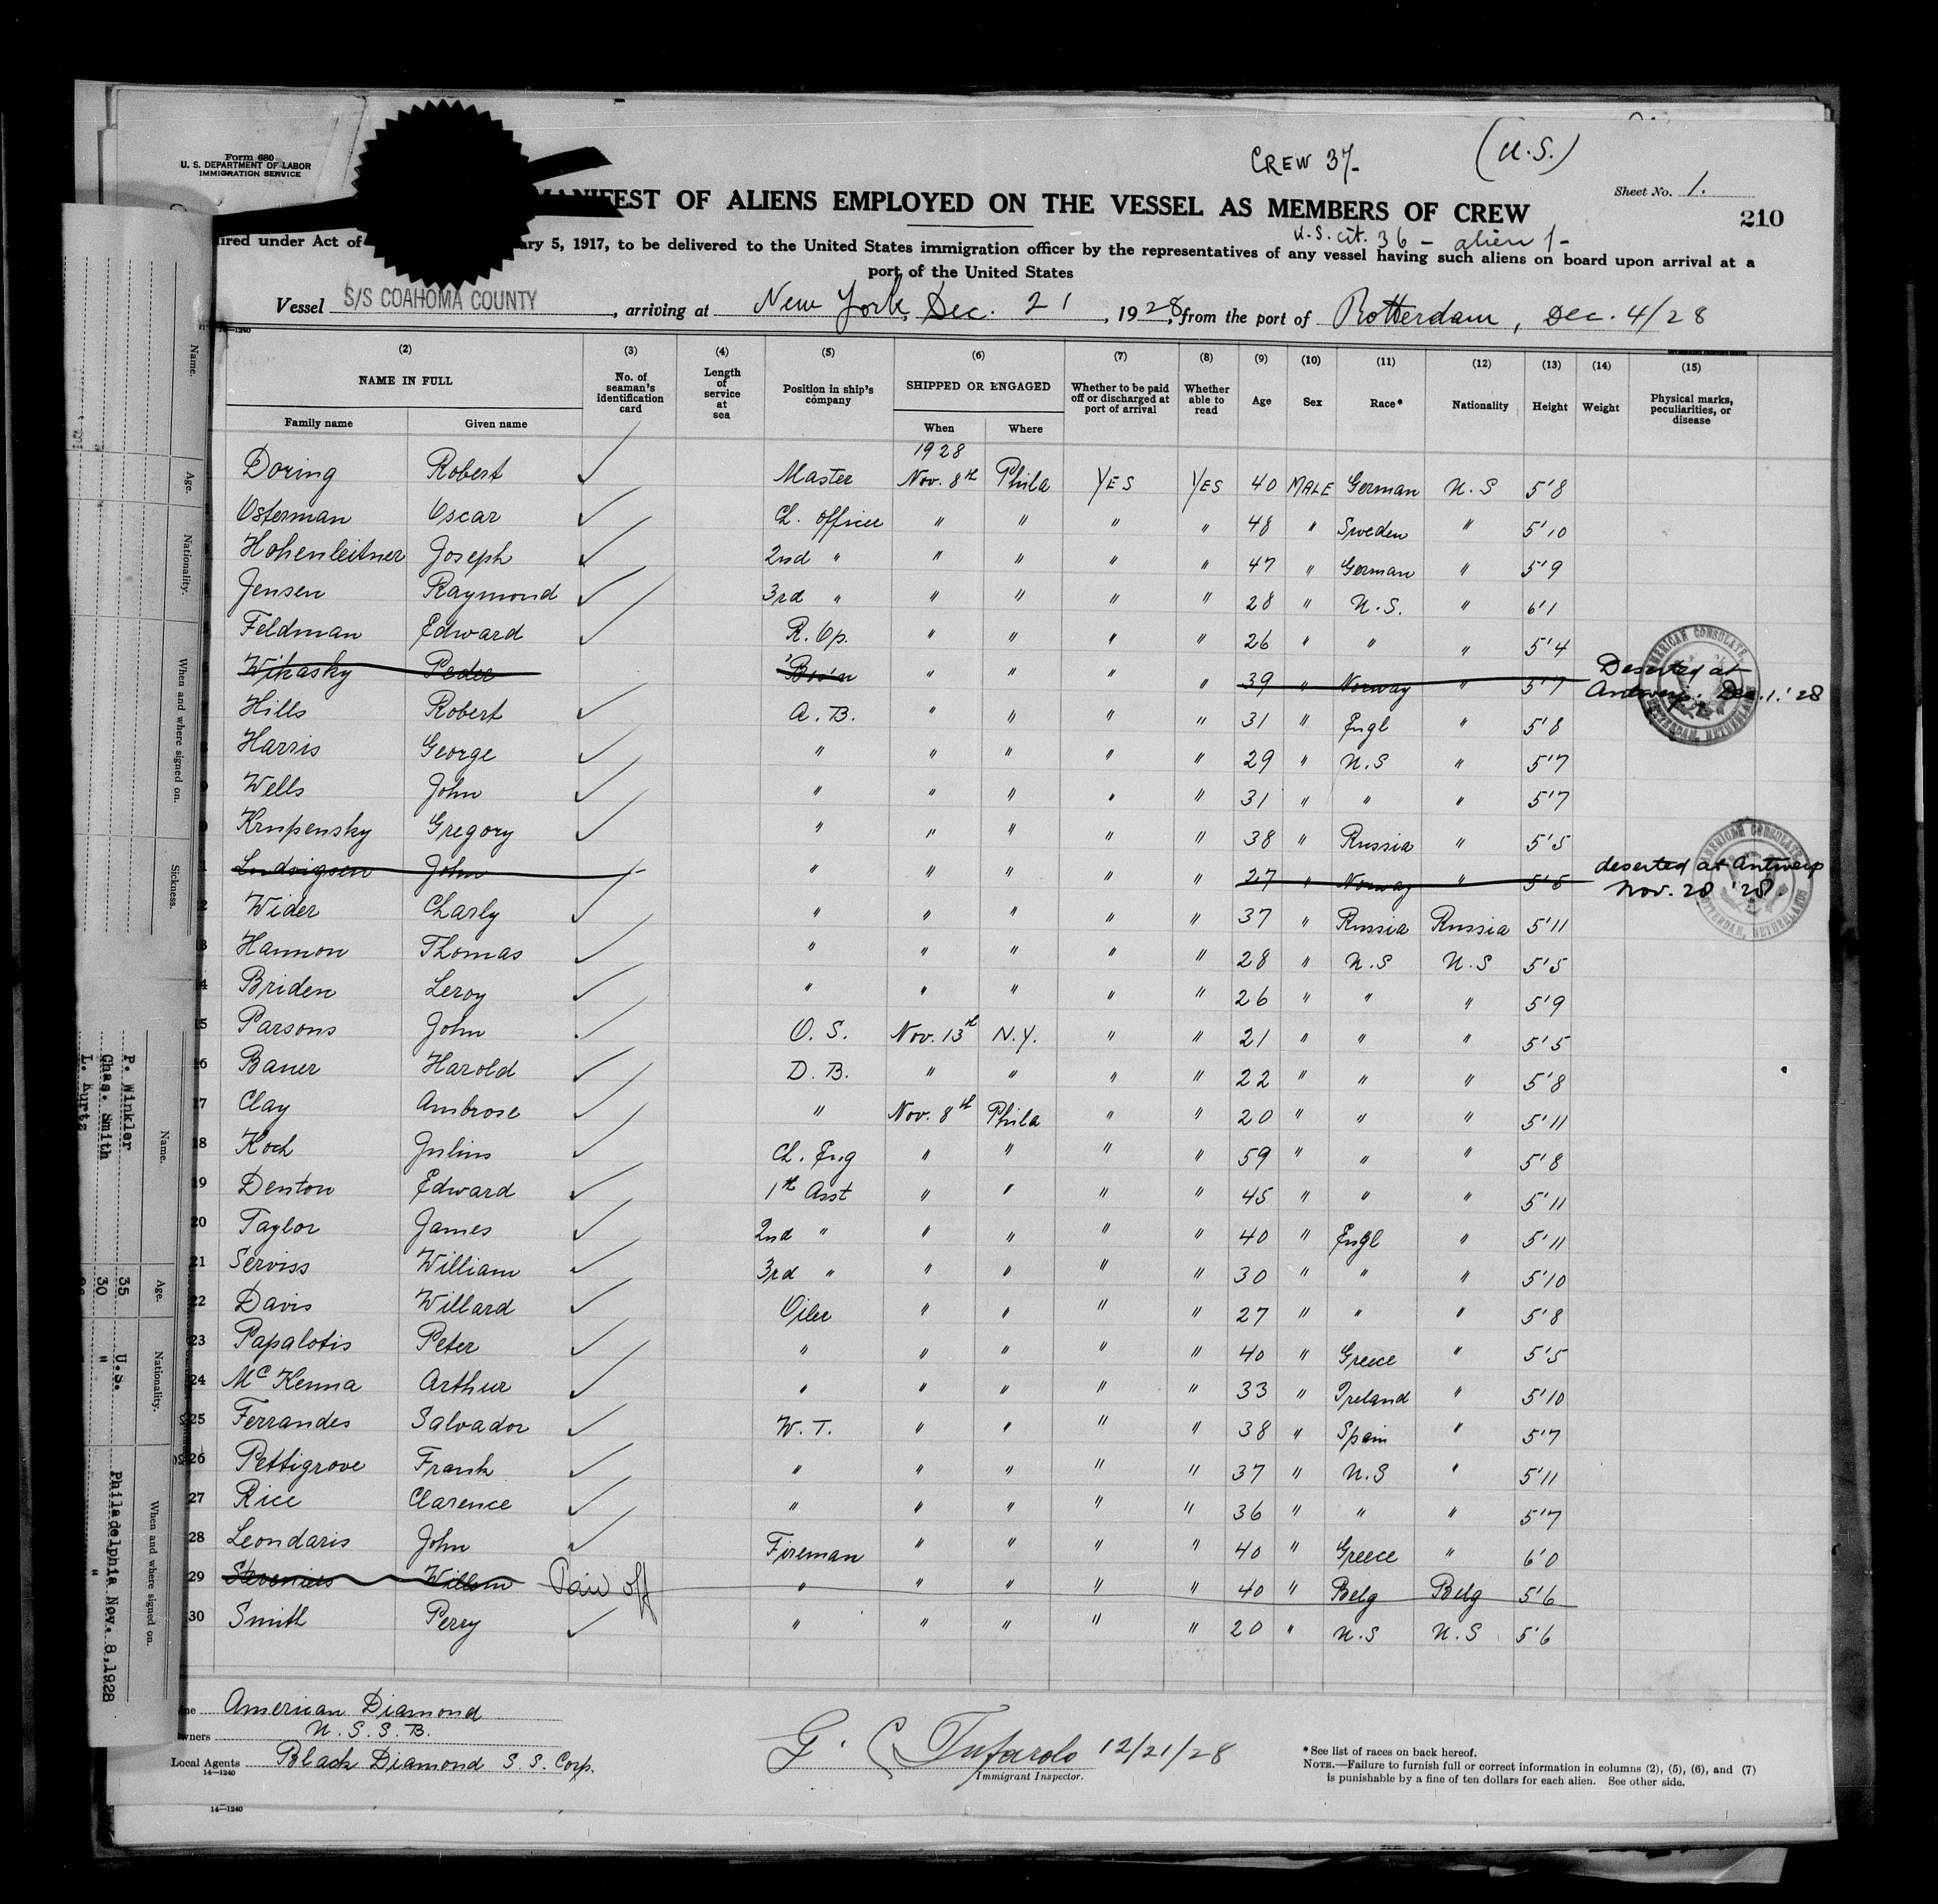 Form 680
U. S. DEPARTMENT OF LABOR
IMMIGRATION SERVICE
CREW 37-
(U.S.)
Sheet No. 1.
210
MANIFEST OF ALIENS EMPLOYED ON THE VESSEL AS MEMBERS OF CREW
U.S. cit. 36 - alien 1-
ired under Act of ary 5, 1917, to be delivered to the United States immigration officer by the representatives of any vessel having such aliens on board upon arrival at a
port of the United States
Vessel S/S COAHOMA COUNTY, arriving at New York, Dec. 21, 1928, from the port of Rotterdam, Dec. 4/28
14-1240
(2) (3) (4) (5) (6) (7) (8) (9) (10) (11) (12) (13) (14) (15)
NAME IN FULL No. of seaman's identification card Length of service at sea Position in ship's company SHIPPED OR ENGAGED Whether to be paid off or discharged at port of arrival Whether able to read Age Sex Race* Nationality Height Weight Physical marks, peculiarities, or disease
Family name Given name When Where
1928
Doring Robert ✓ Master Nov. 8th Phila YES YES 40 MALE German U.S 5'8
Osterman Oscar ✓ Ch. officer " " " " 48 " Sweden " 5'10
Hohenleitner Joseph ✓ 2nd " " " " " 47 " German " 5'9
Jensen Raymond ✓ 3rd " " " " " 28 " U.S. " 6'1
Feldman Edward ✓ R. Op. " " " " 26 " " " 5'4
Wikasky Peder Bos'n " " " " 39 " Norway " 5'7 Deserted at Antwerp. Dec. 1.'28
Hills Robert ✓ A.B. " " " " 31 " Engl " 5'8
8 Harris George ✓ " " " " " 29 " U.S " 5'7
9 Wells John ✓ " " " " " 31 " " " 5'7
0 Krupensky Gregory ✓ " " " " " 38 " Russia " 5'5
1 Ludvigsen John " " " " " 27 " Norway " 5'6 deserted at Antwerp Nov. 20 '28.
2 Wider Charly ✓ " " " " " 37 " Russia Russia 5'11
13 Hannon Thomas ✓ " " " " " 28 " U.S U.S 5'5
4 Briden Leroy ✓ " " " " " 26 " " " 5'9
15 Parsons John ✓ O.S. Nov. 13th N.Y. " " 21 " " " 5'5
16 Bauer Harold ✓ D.B. " " " " 22 " " " 5'8
17 Clay Ambrose ✓ " Nov. 8th Phila " " 20 " " " 5'11
18 Koch Julius ✓ Ch. Eng " " " " 59 " " " 5'8
19 Denton Edward ✓ 1th Asst " " " " 45 " " " 5'11
20 Taylor James ✓ 2nd " " " " " 40 " Engl " 5'11
21 Serviss William ✓ 3rd " " " " " 30 " " " 5'10
22 Davis Willard ✓ Oiler " " " " 27 " " " 5'8
23 Papalotis Peter ✓ " " " " " 40 " Greece " 5'5
24 McKenna Arthur ✓ " " " " " 33 " Ireland " 5'10
25 Ferrandes Salvador ✓ W.T. " " " " 38 " Spain " 5'7
26 Pettigrove Frank ✓ " " " " " 37 " U.S " 5'11
27 Rice Clarence ✓ " " " " " 36 " " " 5'7
28 Leondaris John ✓ Fireman " " " " 40 " Greece " 6'0
29 Willem Paid off " " " " " 40 " Belg Belg 5'6
30 Smith Perry ✓ " " " " " 20 " U.S U.S 5'6
AMERICAN CONSULATE
ROTTERDAM, NETHERLANDS
AMERICAN CONSULATE
ROTTERDAM, NETHERLANDS
ne American Diamond
wners U.S.S.B.
Local Agents Black Diamond S.S. Corp.
14-1240
G. C. Tufarolo 12/21/28
Immigrant Inspector.
*See list of races on back hereof.
NOTE.—Failure to furnish full or correct information in columns (2), (5), (6), and (7)
is punishable by a fine of ten dollars for each alien. See other side.
14-1240
Name.
Age.
Nationality.
When and where signed on.
Sickness.
Name.
Age.
Nationality.
When and where signed on.
P. Winkler 35 U.S. Philadelphia Nov. 8,1928
Chas. Smith 30 " "
L. Kurtz